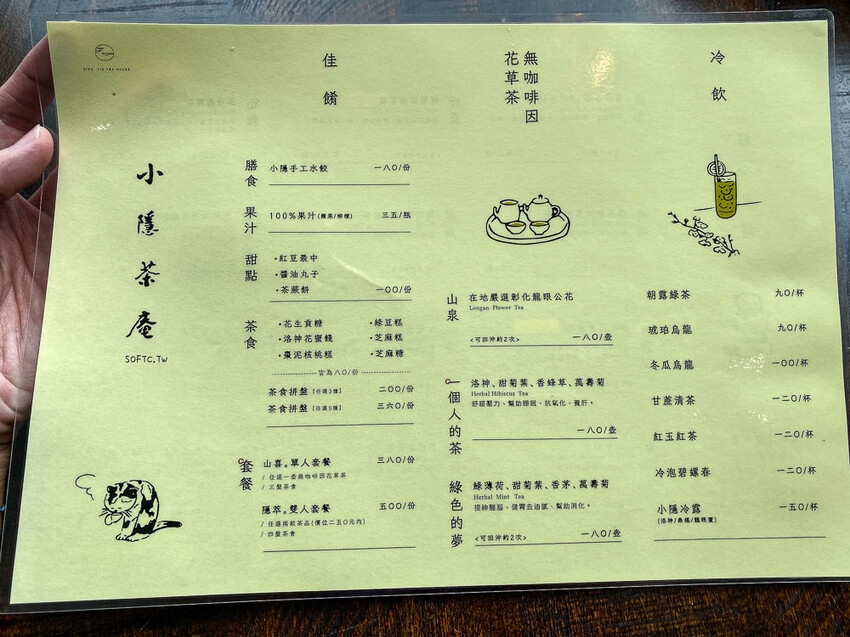 小隱茶庵
SOFTC.TW
佳餚
膳食
小隱手工水餃 一八〇/份
果汁
100%果汁(蘋果/柳橙) 三五/瓶
甜點
•紅豆最中
•醬油丸子
•茶蕨餅 一〇〇/份
茶食
•花生貢糖 •綠豆糕
•洛神花蜜餞 •芝麻糕
•棗泥核桃糕 •芝麻糖
皆為八〇/份
茶食拼盤 [任選3種] 二〇〇/份
茶食拼盤 [任選5種] 三六〇/份
套餐
山喜。單人套餐 三八〇/份
/ 任選一壺無咖啡因花草茶
/ 三盤茶食
隱萃。雙人套餐 五〇〇/份
/ 任選兩款茶品(價位二五〇元內)
/ 四盤茶食
無咖啡因
花草茶
山泉
在地嚴選彰化龍眼公花
Longan Flower Tea
<可回沖約2次> 一八〇/壺
一個人的茶
洛神、甜菊葉、香蜂草、萬壽菊
Herbal Hibiscus Tea
舒緩壓力、幫助睡眠、抗氧化、養肝。
一八〇/壺
綠色的夢
綠薄荷、甜菊葉、香茅、萬壽菊
Herbal Mint Tea
提神醒腦、健胃去油膩、幫助消化。
<可回沖約2次> 一八〇/壺
冷飲
朝露綠茶 九〇/杯
琥珀烏龍 九〇/杯
冬瓜烏龍 一〇〇/杯
甘蔗清茶 一二〇/杯
紅玉紅茶 一二〇/杯
冷泡碧螺春 一二〇/杯
小隱冷露 一五〇/杯